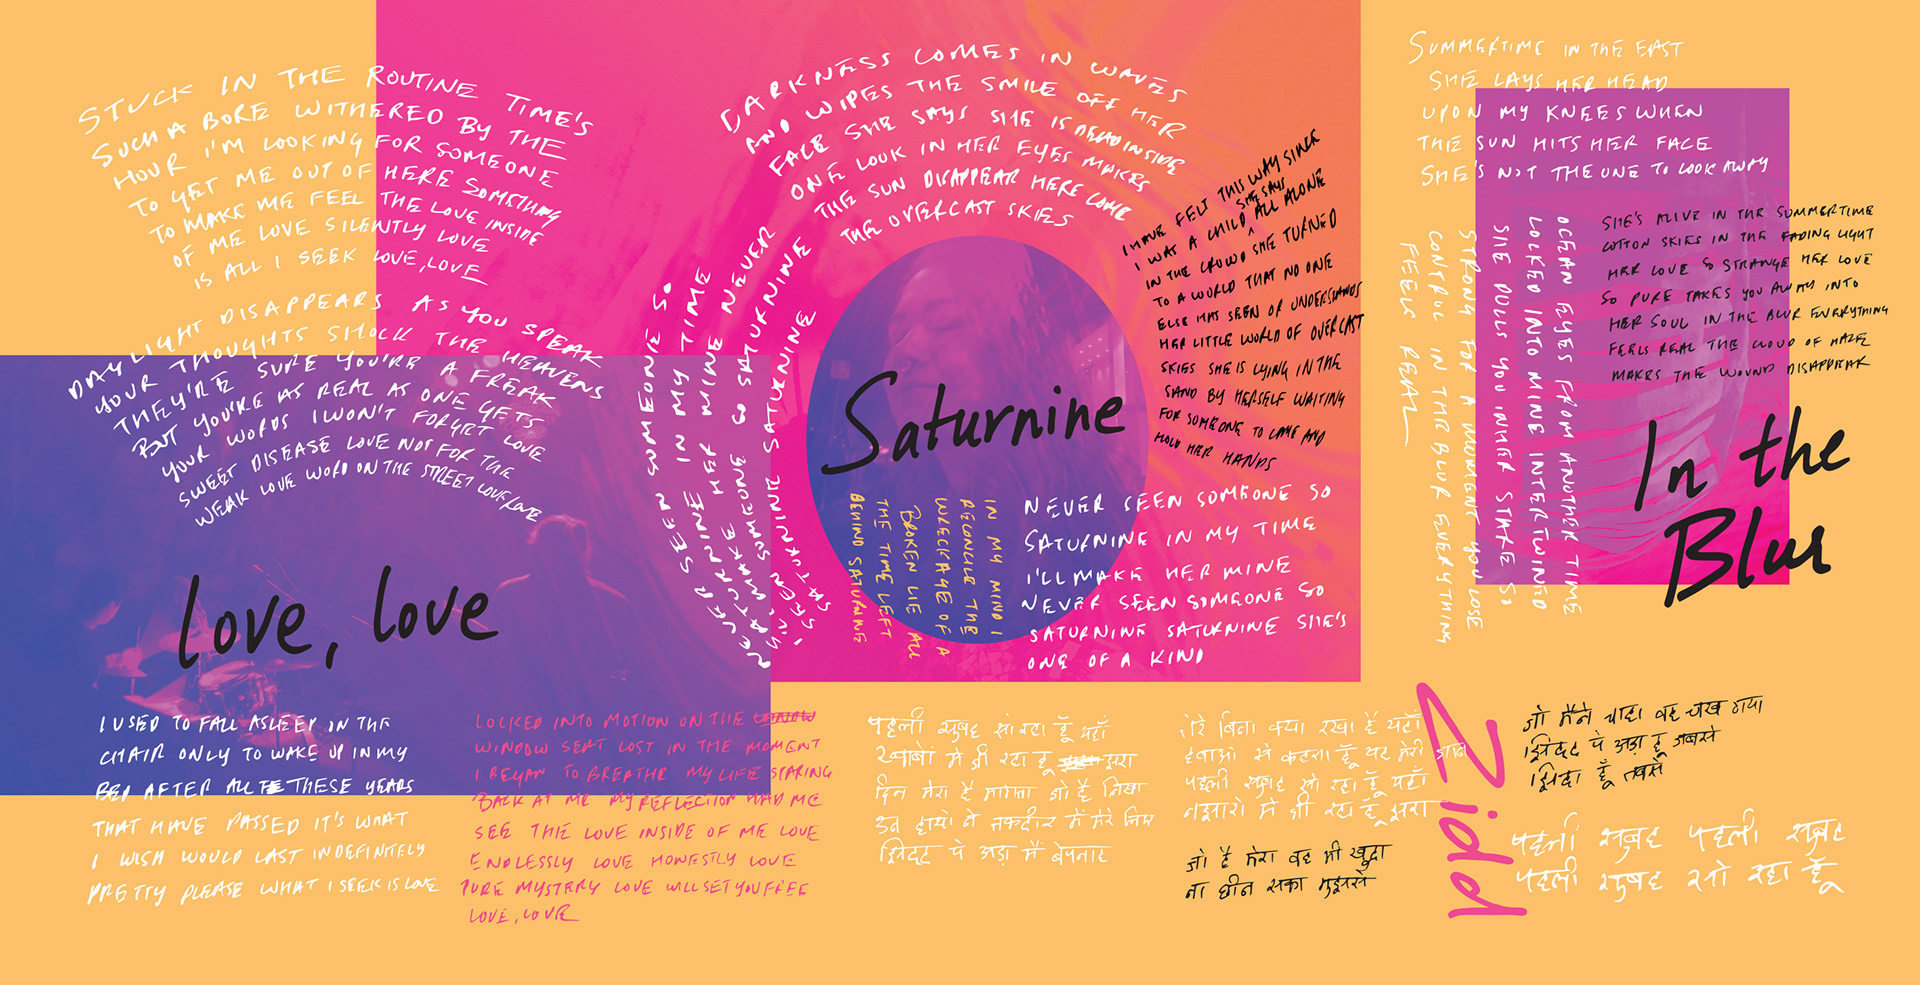 STUCK IN THE ROUTINE TIME'S
SUCH A BORE WITHERED BY THE
HOUR I'M LOOKING FOR SOMEONE
TO GET ME OUT OF HERE SOMETHING
TO MAKE ME FEEL THE LOVE INSIDE
OF ME LOVE SILENTLY LOVE
IS ALL I SEEK LOVE, LOVE
DAYLIGHT DISAPPEARS AS YOU SPEAK
YOUR THOUGHTS SHOCK THE HEAVENS
THEY'RE SURE YOU'RE A FREAK
BUT YOU'RE AS REAL AS ONE GETS
YOUR WORDS I WON'T FORGET LOVE
SWEET DISEASE LOVE NOT FOR THE
WEAK LOVE WORD ON THE STREET LOVE, LOVE
love, love
I USED TO FALL ASLEEP ON THE
CHAIR ONLY TO WAKE UP IN MY
BED AFTER ALL THESE YEARS
THAT HAVE PASSED IT'S WHAT
I WISH WOULD LAST INDEFINITELY
PRETTY PLEASE WHAT I SEEK IS LOVE
LOCKED INTO MOTION ON THE
WINDOW SEAT LOST IN THE MOMENT
I BEGAN TO BREATHE MY LIFE STARING
BACK AT ME MY REFLECTION HAD ME
SEE THE LOVE INSIDE OF ME LOVE
ENDLESSLY LOVE HONESTLY LOVE
PURE MYSTERY LOVE WILL SET YOU FREE
LOVE, LOVE
DARKNESS COMES IN WAVES
AND WIPES THE SMILE OFF HER
FACE SHE SAYS SHE IS DEAD INSIDE
ONE LOOK IN HER EYES MAKES
THE SUN DISAPPEAR HERE COME
THE OVERCAST SKIES
NEVER SEEN SOMEONE SO
SATURNINE IN MY TIME
I'LL MAKE HER MINE NEVER
SEEN SOMEONE SO SATURNINE
SATURNINE SATURNINE
I HAVE FELT THIS WAY SINCE
I WAS A CHILD SHE SAYS ALL ALONE
IN THE CROWD SHE TURNED
TO A WORLD THAT NO ONE
ELSE HAS SEEN OR UNDERSTANDS
HER LITTLE WORLD OF OVERCAST
SKIES SHE IS LYING IN THE
SAND BY HERSELF WAITING
FOR SOMEONE TO COME AND
HOLD HER HANDS
Saturnine
IN MY MIND I
RECONCILE THE
WRECKAGE OF A
BROKEN LIE ALL
THE TIME LEFT
BEHIND SATURNINE
NEVER SEEN SOMEONE SO
SATURNINE IN MY TIME
I'LL MAKE HER MINE
NEVER SEEN SOMEONE SO
SATURNINE SATURNINE SHE'S
ONE OF A KIND
SUMMERTIME IN THE EAST
SHE LAYS HER HEAD
UPON MY KNEES WHEN
THE SUN HITS HER FACE
SHE'S NOT THE ONE TO LOOK AWAY
OCEAN EYES FROM ANOTHER TIME
LOCKED INTO MINE INTERTWINED
SHE PULLS YOU IN HER STARE SO
STRONG FOR A MOMENT YOU LOSE
CONTROL IN THE BLUR EVERYTHING
FEELS REAL
SHE'S ALIVE IN THE SUMMERTIME
COTTON SKIES IN THE FADING LIGHT
HER LOVE SO STRANGE HER LOVE
SO PURE TAKES YOU AWAY INTO
HER SOUL IN THE BLUR EVERYTHING
FEELS REAL THE CLOUD OF HAZE
MAKES THE WOUND DISAPPEAR
In the
Blur
पहली सुबह सो रहा हूँ यहाँ
ख्वाबों में जी रहा हूँ बुरा
दिन मेरा है माना जो है लिखा
इन हाथों ने तकदीर में मेरे लिए
ज़िद्द पे अड़ा मैं बेपनाह
तेरे बिना क्या रखा है यहाँ
हवाओं से कहता हूँ पर मेरी
पहली सुबह सो रहा हूँ यहाँ
नज़ारों में जी रहा हूँ बुरा
जो है मेरा वह भी खुदा
ना छीन सका मुझसे
Zidd
जो मैंने चाहा वह चख
ज़िद्द पे अड़ा हूँ जबसे
ज़िंदा हूँ तबसे
पहली सुबह पहली सुबह
पहली सुबह सो रहा हूँ